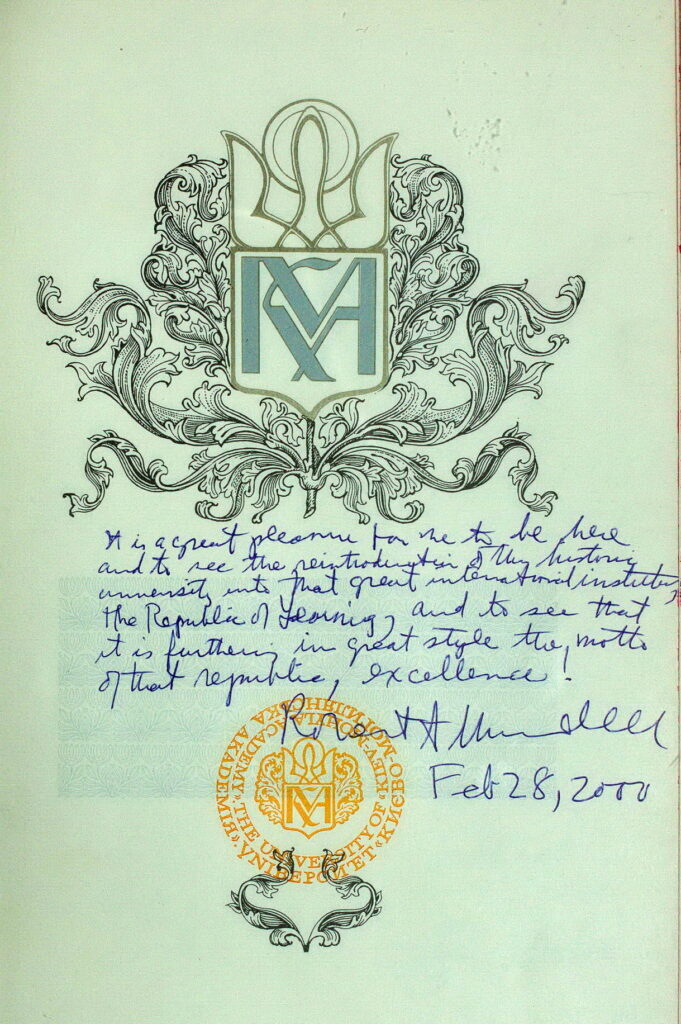 КМА
It is a great pleasure for me to be here
and to see the reintroduction of this historic
university into that great international institution,
the Republic of Learning, and to see that
it is furthering in great style the motto
of that republic, excellence!
Robert A Mundell
Feb 28, 2000
УНІВЕРСИТЕТ «КИЄВО-МОГИЛЯНСЬКА АКАДЕМІЯ»
THE UNIVERSITY OF «KYIV-MOHYLA ACADEMY»